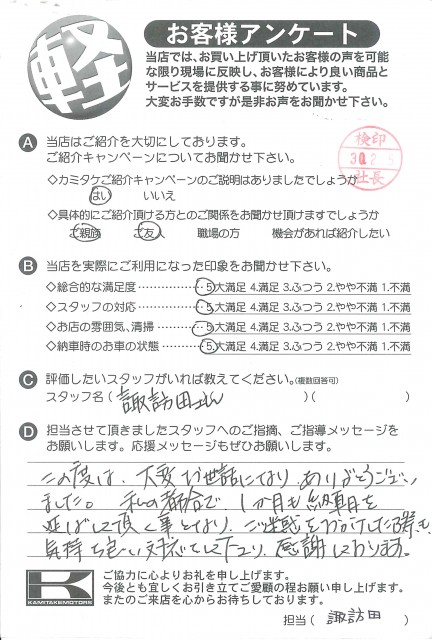 軽
お客様アンケート
当店では、お買い上げ頂いたお客様の声を可能
な限り現場に反映し、お客様により良い商品と
サービスを提供する事に努めています。
大変お手数ですが是非お声をお聞かせ下さい。
A 当店はご紹介を大切にしております。
ご紹介キャンペーンについてお聞かせ下さい。
検印
30.2.5
社長
◇カミタケご紹介キャンペーンのご説明はありましたでしょうか
はい いいえ
◇具体的にご紹介頂ける方とのご関係をお聞かせ頂けますでしょうか
ご親族 ご友人 職場の方 機会があれば紹介したい
B 当店を実際にご利用になった印象をお聞かせ下さい。
◇総合的な満足度 5.大満足 4.満足 3.ふつう 2.やや不満 1.不満
◇スタッフの対応 5.大満足 4.満足 3.ふつう 2.やや不満 1.不満
◇お店の雰囲気、清掃 5.大満足 4.満足 3.ふつう 2.やや不満 1.不満
◇納車時のお車の状態 5.大満足 4.満足 3.ふつう 2.やや不満 1.不満
C 評価したいスタッフがいれば教えてください。(複数回答可)
スタッフ名 ( 諏訪田さん )( )
D 担当させて頂きましたスタッフへのご指摘、ご指導メッセージを
お願いします。応援メッセージもぜひお願いします。
この度は、大変お世話になり、ありがとうござい
ました。私の都合で、1か月も納車日を
延ばして頂く事となり、ご迷惑をおかけした際も、
気持ち良い対応をして下さり、感謝しております。
KAMITAKEMOTORS
ご協力に心よりお礼を申し上げます。
今後とも宜しくお引き立てご愛顧の程お願い申し上げます。
またのご来店を心からお待ちしております。
担当 ( 諏訪田 )